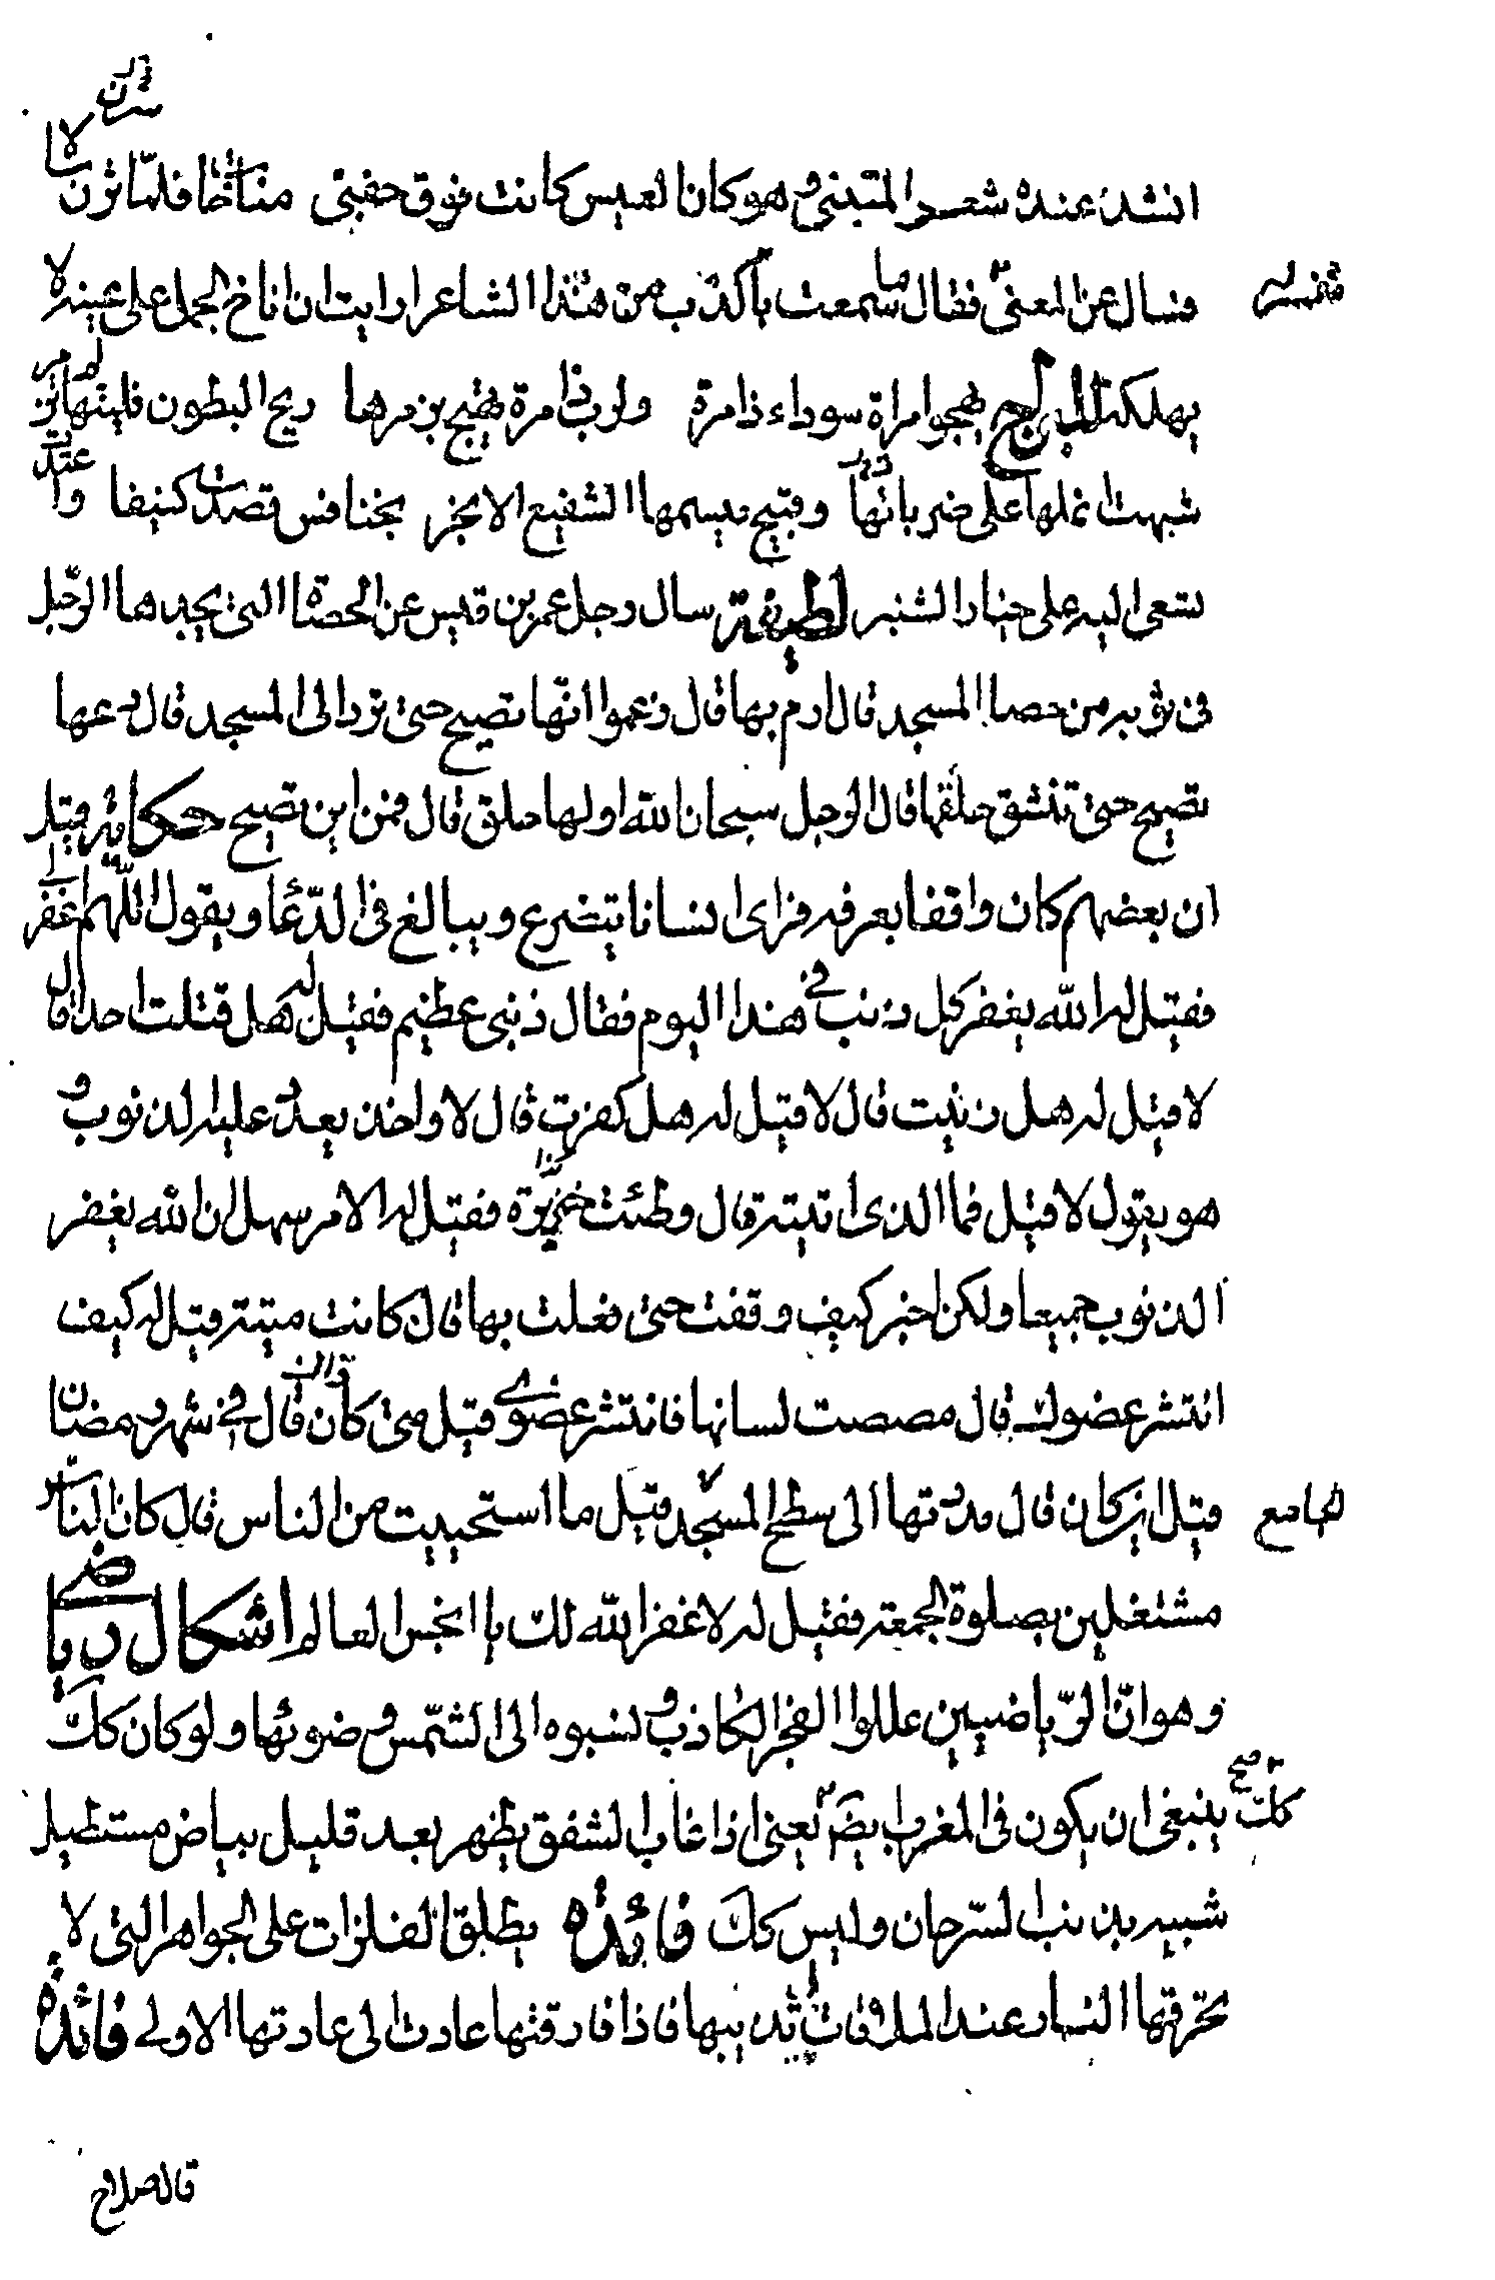 انشد عنده شعر المتنبي وهو كان العيس كانت فوق جفني مناخة فلما ثرن سالا
فسال عن المعنى فقال ما سمعت باكذب من هذا الشاعر ارايت ان اناخ الجمل على عينه لا
يهلكه يهجو امراة سوداء زامرة ولرب زامرة يهيج بزمرها ريح البطون فليتها لم تزمر
شبهت انملها على ضرباتها وقبيح مبسمها الشفيع الابخر بخنافس قصدت كنيفا واعتدت
تسعى اليه على خيار الشنبر لطيفة سال رجل عمر بن قيس عن الحصاة التي يجدها الرجل
في ثوبه من حصا المسجد قال ارم بها قال زعموا انها تصيح حتى ترد الى المسجد قال دعها
تصيح حتى تنشق حلقها قال الرجل سبحان الله اولها حلق قال فمن اين تصيح حكاية قيل
ان بعضهم كان واقفا بعرفه فراى انسانا يتضرع ويبالغ في الدعا ويقول اللهم اغفر لي
فقيل له الله يغفر كل ذنب في هذا اليوم فقال ذنبي عظيم فقيل له هل قتلت احدا قال
لا قيل له هل زنيت قال لا قيل له هل كفرت قال لا واخذ يعد عليه الذنوب و
هو يقول لا قيل فما الذي اتيته قال وطئت خنزيرة فقيل له الامر سهل ان الله يغفر
الذنوب جميعا ولكن اخبر كيف وقفت حتى فعلت بها قال كانت ميتة قيل له كيف
انتشر عضوك قال مصصت لسانها فانتشر عضوي قيل متى كان قال في شهر رمضان
قيل اين كان قال مددتها الى سطح المسجد قيل ما استحييت من الناس قال كان الناس
الجامع
مشتغلين بصلوة الجمعة فقيل له لا غفر الله لك يا انجس العالم اشكال رياضي
وهو ان الرياضيين عللوا الفجر الكاذب ونسبوه الى الشمس وضوئها ولو كان كك
ينبغي ان يكون في المغرب ايض كك يعني اذا غاب الشفق يظهر بعد قليل بياض مستطيل
شبيه بذنب السرحان وليس كك فائدة يطلق الفلزات على الجواهر التي لا
يحرقها النار عند الملاقات بل تذيبها فاذا فارقتها عادت الى عادتها الاولى فائدة
قال صلاح